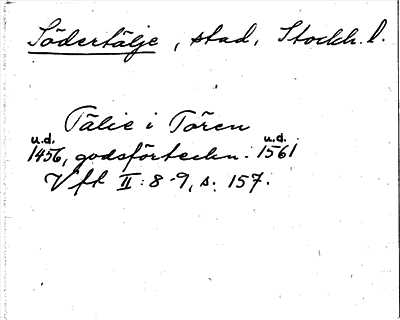 Södertälje, stad, Stockh. l.
Tälie i Tören
u.d. u.d.
1456, godsförteckn. 1561
Vft II: 8-9, s. 157.